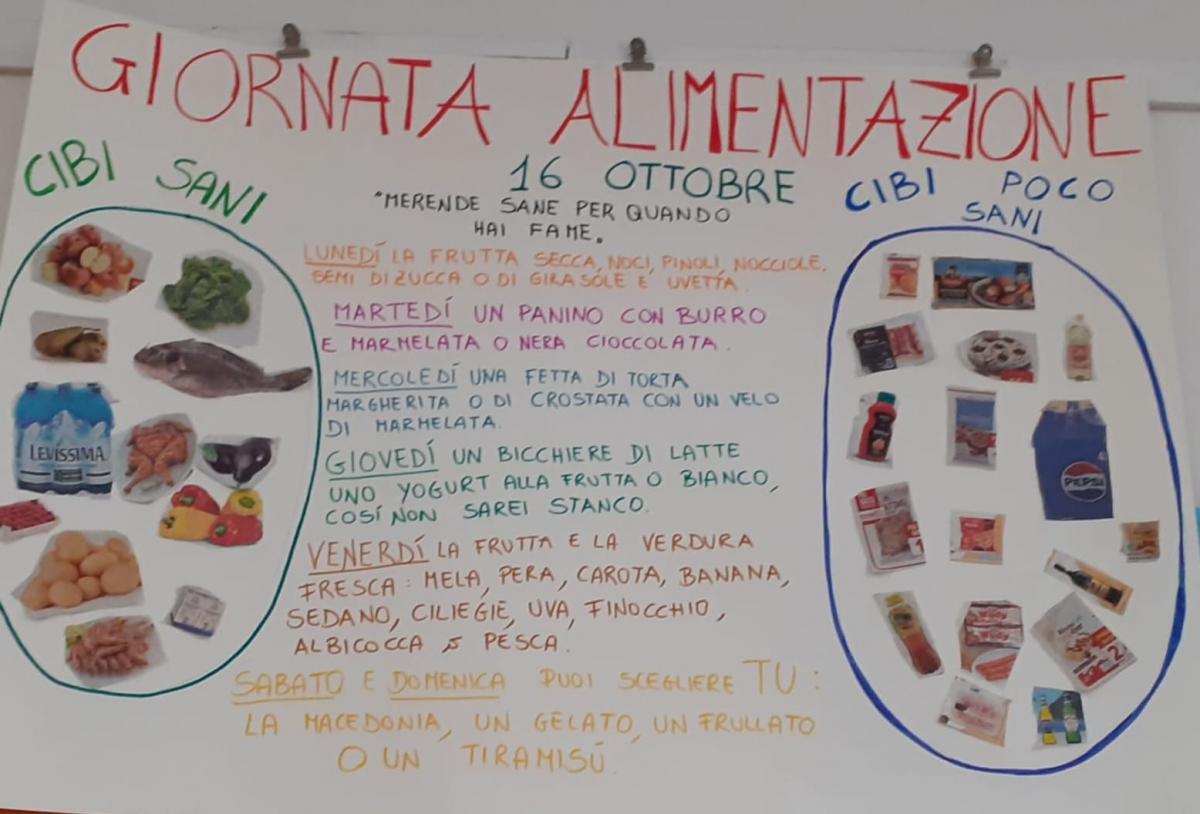 GIORNATA ALIMENTAZIONE
16 OTTOBRE
CIBI SANI
CIBI POCO
SANI
"MERENDE SANE PER QUANDO
HAI FAME.
LUNEDÍ LA FRUTTA SECCA, NOCI, PINOLI, NOCCIOLE,
SEMI DI ZUCCA O DI GIRASOLE E UVETTA.
MARTEDÍ UN PANINO CON BURRO
E MARMELATA O NERA CIOCCOLATA.
MERCOLEDÍ UNA FETTA DI TORTA
MARGHERITA O DI CROSTATA CON UN VELO
DI MARMELATA.
GIOVEDÍ UN BICCHIERE DI LATTE
UNO YOGURT ALLA FRUTTA O BIANCO,
COSÍ NON SAREI STANCO.
VENERDÍ LA FRUTTA E LA VERDURA
FRESCA: MELA, PERA, CAROTA, BANANA,
SEDANO, CILIEGIE, UVA, FINOCCHIO,
ALBICOCCA PESCA.
SABATO E DOMENICA PUOI SCEGLIERE TU:
LA MACEDONIA, UN GELATO, UN FRULLATO
O UN TIRAMISÚ.
LEVISSIMA
PEPSI